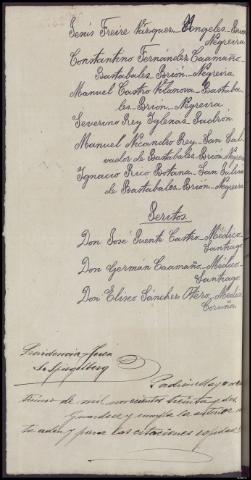 Jesús Freire Vázquez Angeles-Brion
Negreira
Constantino Fernández Caamaño
Bastabales Brión Negreira
Manuel Castro Vilanova Bastaba-
les-Brión-Negreira
Severino Rey Iglesias Padrón
Manuel Nicandro Rey San Sal-
vador de Bastabales Brión Negreira
Ignacio Rico Botana San Julián
de Bastabales-Brión-Negreira
Peritos
Don José Puente Castro Médico
Santiago
Don Germán Caamaño-Médico
Santiago
Don Eliseo Sánchez Otero Médico
Coruña
Providencia Juez
Sr Spiegelberg
Padrón Mayo
de mil novecientos treinta y
Guardese y cumpla la anterior
y para las citaciones